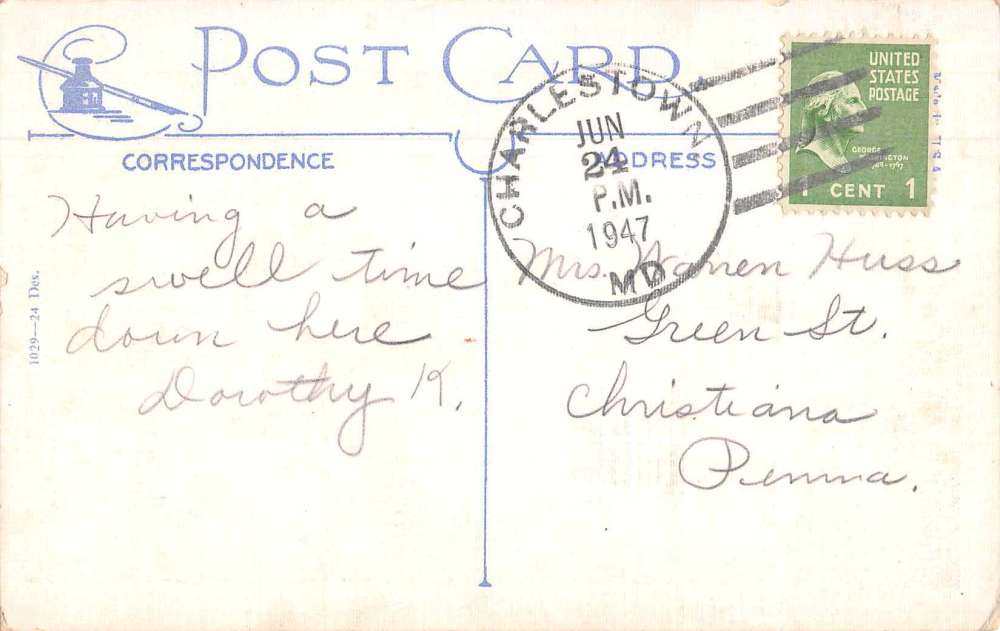 POST CARD
CORRESPONDENCE
ADDRESS
UNITED
STATES
POSTAGE
GEORGE
WASHINGTON
1 CENT 1
CHARLESTOWN
JUN
24
P.M.
1947
MD
Having a
swell time
down here
Dorothy K.
Mrs. Warren Huss
Green St.
Christiana
Penna.
1029—24 Des.